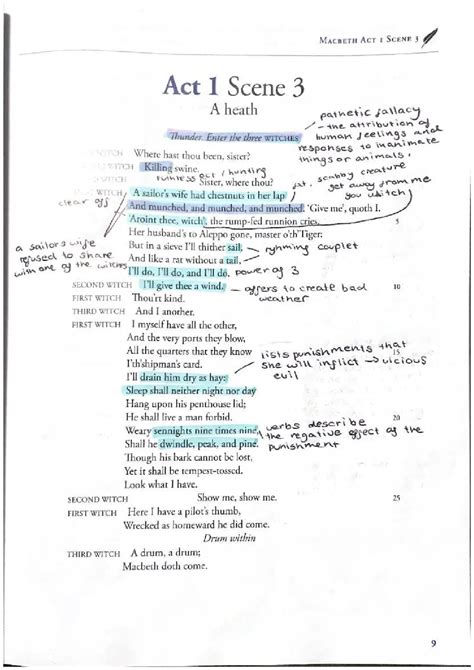 MACBETH ACT 1 SCENE 3
Act 1 Scene 3
A heath
pathetic fallacy
- the attribution of
human feelings and
responses to inanimate
things or animals.
Thunder. Enter the three WITCHES
WITCH Where hast thou been, sister?
WITCH Killing swine.
ruthless act / hunting
WITCH Sister, where thou?
fat, scabby creature
get away from me
you witch
WITCH A sailor's wife had chestnuts in her lap
clear off
And munched, and munched, and munched. 'Give me', quoth I.
'Aroint thee, witch', the rump-fed runnion cries. 5
Her husband's to Aleppo gone, master o'th'Tiger:
a sailors wife
refused to share
with one of the witches
But in a sieve I'll thither sail, - ryhming couplet
And like a rat without a tail,
I'll do, I'll do, and I'll do. power of 3
SECOND WITCH I'll give thee a wind. - offers to create bad 10
weather
FIRST WITCH Thou'rt kind.
THIRD WITCH And I another.
FIRST WITCH I myself have all the other,
And the very ports they blow,
All the quarters that they know 15
I'th'shipman's card.
lists punishments that
she will inflict → vicious
evil
I'll drain him dry as hay:
Sleep shall neither night nor day
Hang upon his penthouse lid;
He shall live a man forbid. 20
Weary sennights nine times nine,
Shall he dwindle, peak, and pine.
verbs describe
the negative effect of the
punishment
Though his bark cannot be lost,
Yet it shall be tempest-tossed.
Look what I have.
SECOND WITCH Show me, show me. 25
FIRST WITCH Here I have a pilot's thumb,
Wrecked as homeward he did come.
Drum within
THIRD WITCH A drum, a drum;
Macbeth doth come.
9